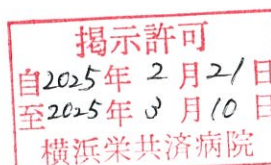 掲示許可
自2025年2月21日
至2025年3月10日
横浜栄共済病院